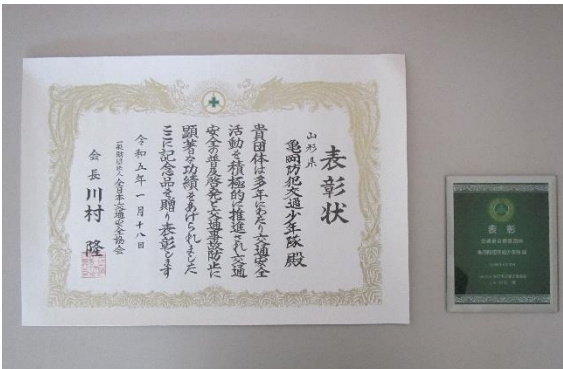 表彰状
山形県
亀岡防犯交通少年隊 殿
貴団体は多年にわたり交通安全
活動を積極的に推進され交通
安全の普及啓発と交通事故防止に
顕著な功績をあげられました
ここに記念品を贈り表彰します
令和五年一月十八日
一般財団法人全日本交通安全協会
会長 川村 隆
表彰